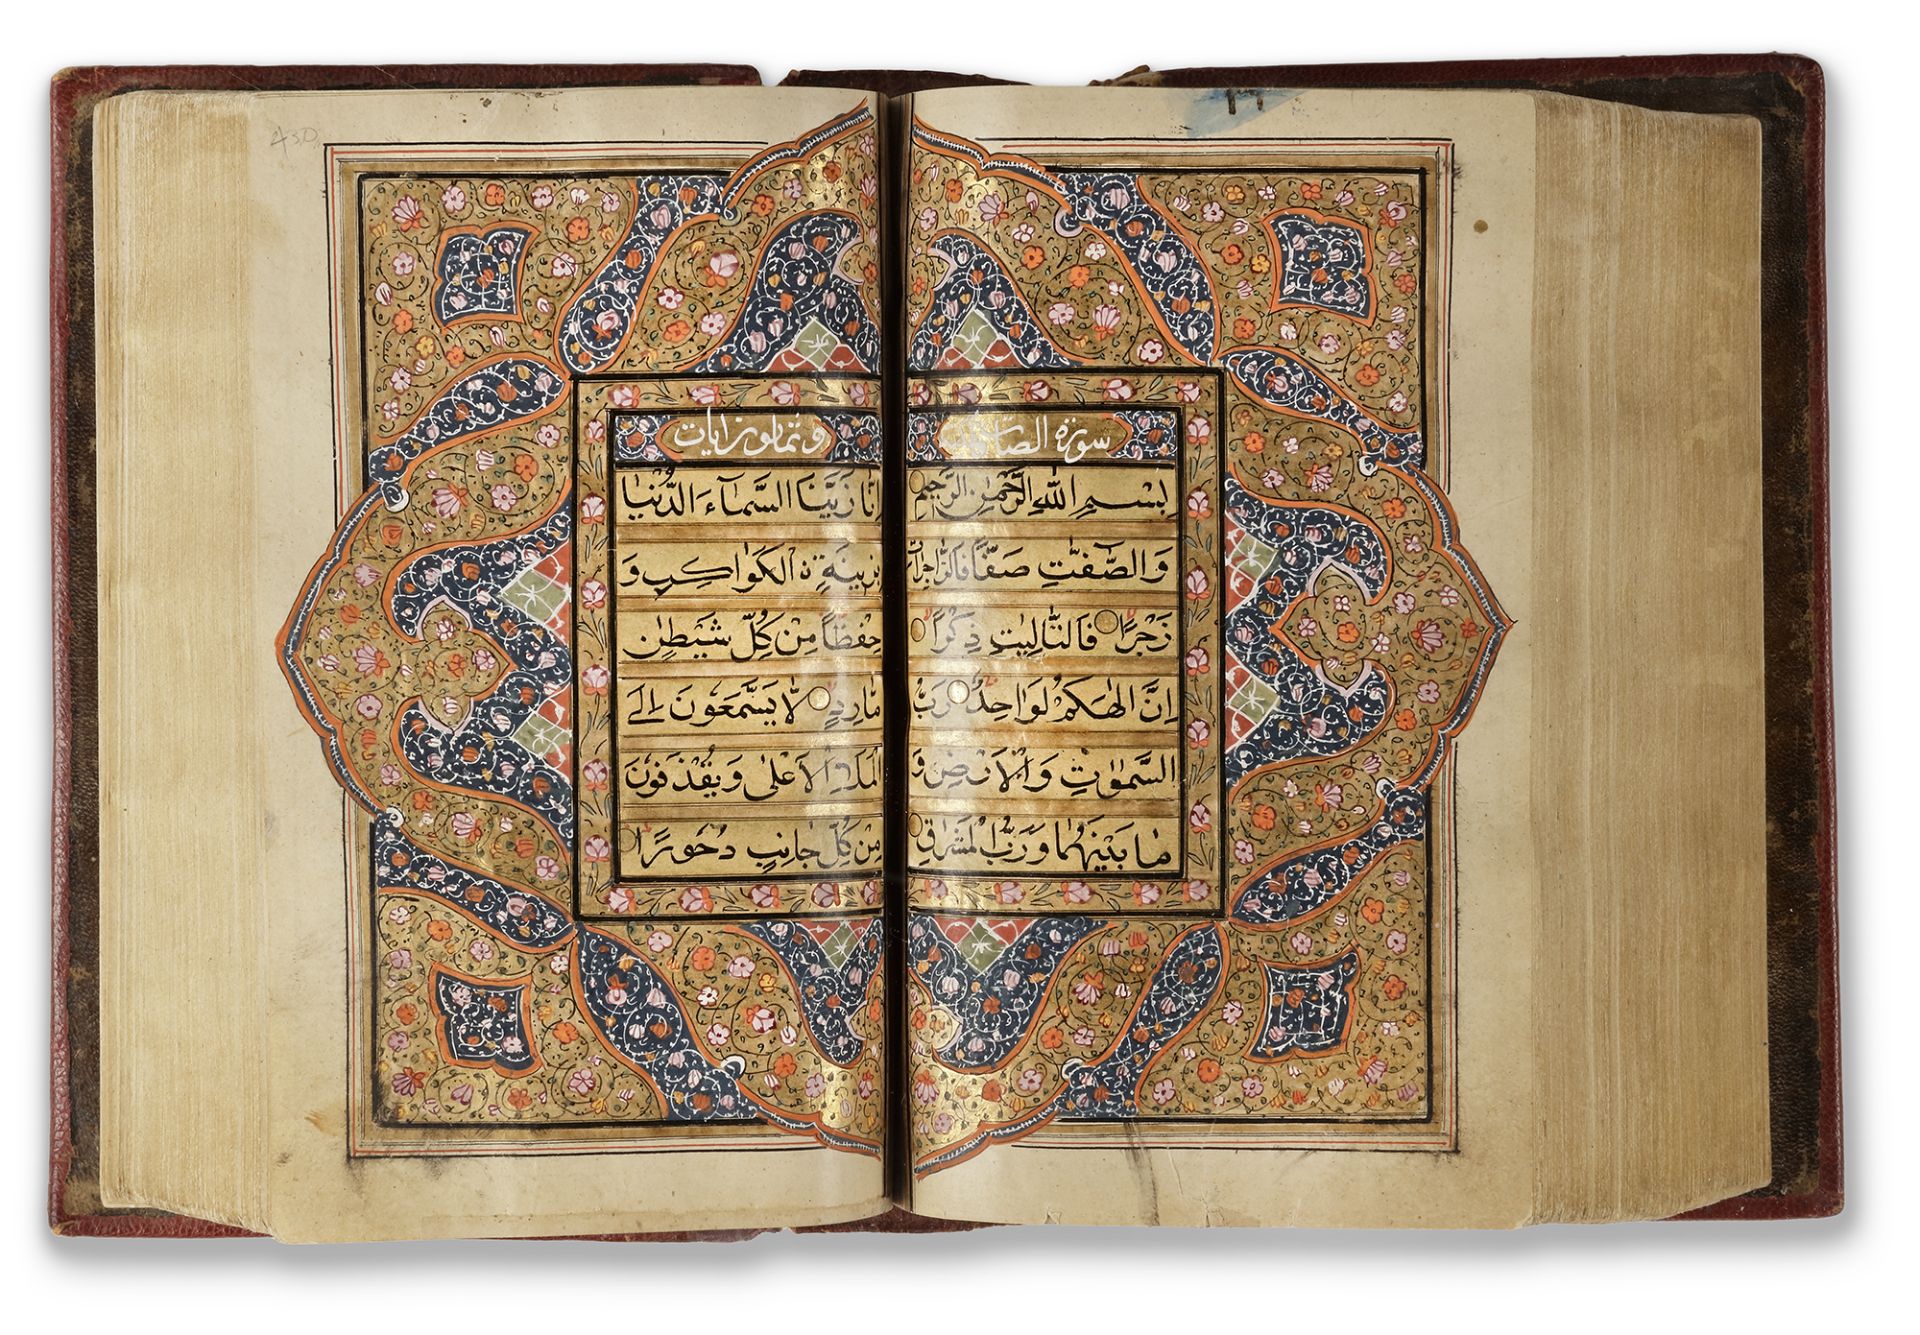 سورة الصافات
بِسْمِ اللهِ الرَّحْمٰنِ الرَّحِيْمِ
وَالصّٰفّٰتِ صَفًّا فَالزّٰجِرٰتِ
زَجْرًا فَالتّٰلِيٰتِ ذِكْرًا
اِنَّ اِلٰهَكُمْ لَوَاحِدٌ رَبُّ
السَّمٰوٰتِ وَالْاَرْضِ وَ
مَا بَيْنَهُمَا وَرَبُّ الْمَشَارِقِ
اِنَّا زَيَّنَّا السَّمَآءَ الدُّنْيَا
بِزِيْنَةِ ࣙالْكَوَاكِبِ وَ
حِفْظًا مِنْ كُلِّ شَيْطٰنٍ
مَارِدٍ لَا يَسَّمَّعُوْنَ اِلَى
الْمَلَاِ الْاَعْلٰى وَيُقْذَفُوْنَ
مِنْ كُلِّ جَانِبٍ دُحُوْرًا